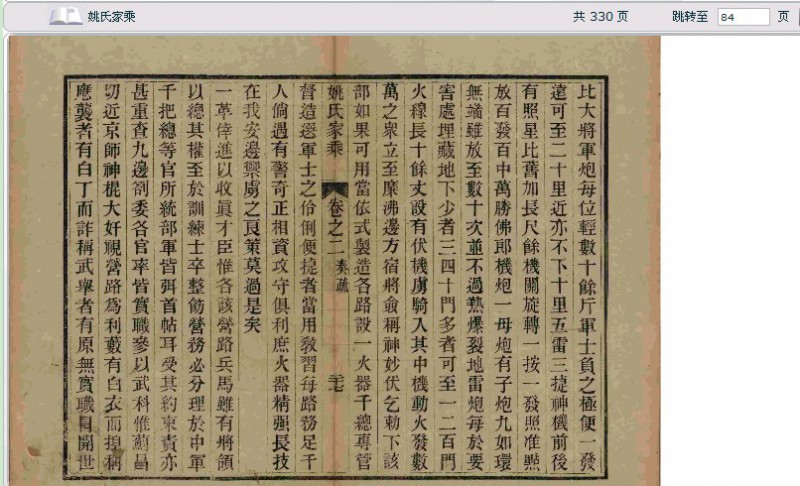 姚氏家乘
共 330 页
跳转至 84 页
比大將軍炮每位輕數十餘斤軍士負之極便一發
遠可至二十里近亦不下十里五雷三捷神機前後
有照星比舊加長尺餘機關旋轉一按一發照准點
放百發百中萬勝佛郎機炮一母炮有子炮九如環
無端雖放至數十次並不過熱爆裂地雷炮每於要
害處埋藏地下少者三四十門多者可至一二百門
火線長十餘丈設有伏機虜騎入其中機動火發數
萬之衆立至糜沸邊方宿將僉稱神妙伏乞勅下該
部如果可用當依式製造各路設一火器千總專管
姚氏家乘 卷之二 奏疏 三七
督造選軍士之伶俐便捷者當用敎習每路務足千
人倘遇有警奇正相資攻守俱利庶火器精强長技
在我安邊禦虜之良策莫過是矣
一革倖進以收眞才臣惟各該營路兵馬雖有將領
以總其權至於訓練士卒整飭營務必分理於中軍
千把總等官所統部軍皆弭首帖耳受其約束責亦
甚重查九邊劄委各官率皆實職參以武科惟薊昌
切近京師神棍大奸視營路爲利藪有白衣而揑稱
應襲者有白丁而詐稱武舉者有原無實職目開世